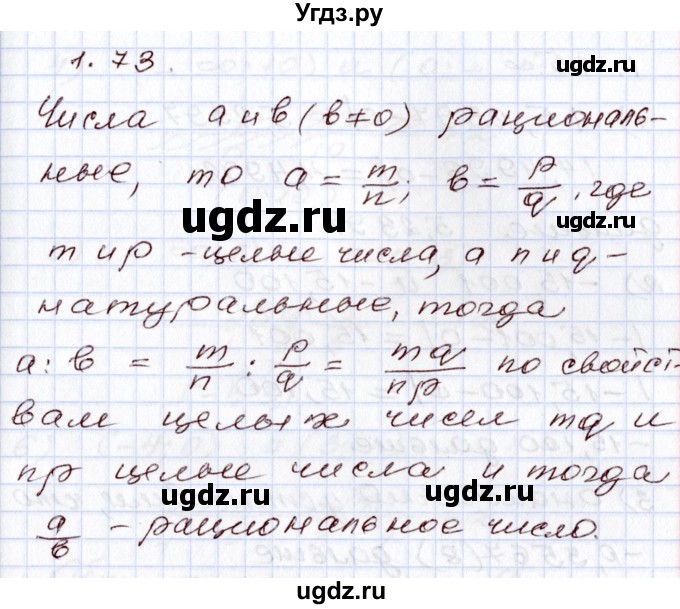 Угдз.ру
1.73.
Числа a и b (b≠0) рациональ-
ные, то a = m/n; b = p/q, где
m и p - целые числа, а n и q -
натуральные, тогда
a : b = m/n : p/q = mq/np по свойст-
вам целых чисел mq и
np целые числа и тогда
a/b - рациональное число.
ugdz.ru
ugdz.ru
ugdz.ru
ugdz.ru
ugdz.ru
ugdz.ru
ugdz.ru
ugdz.ru